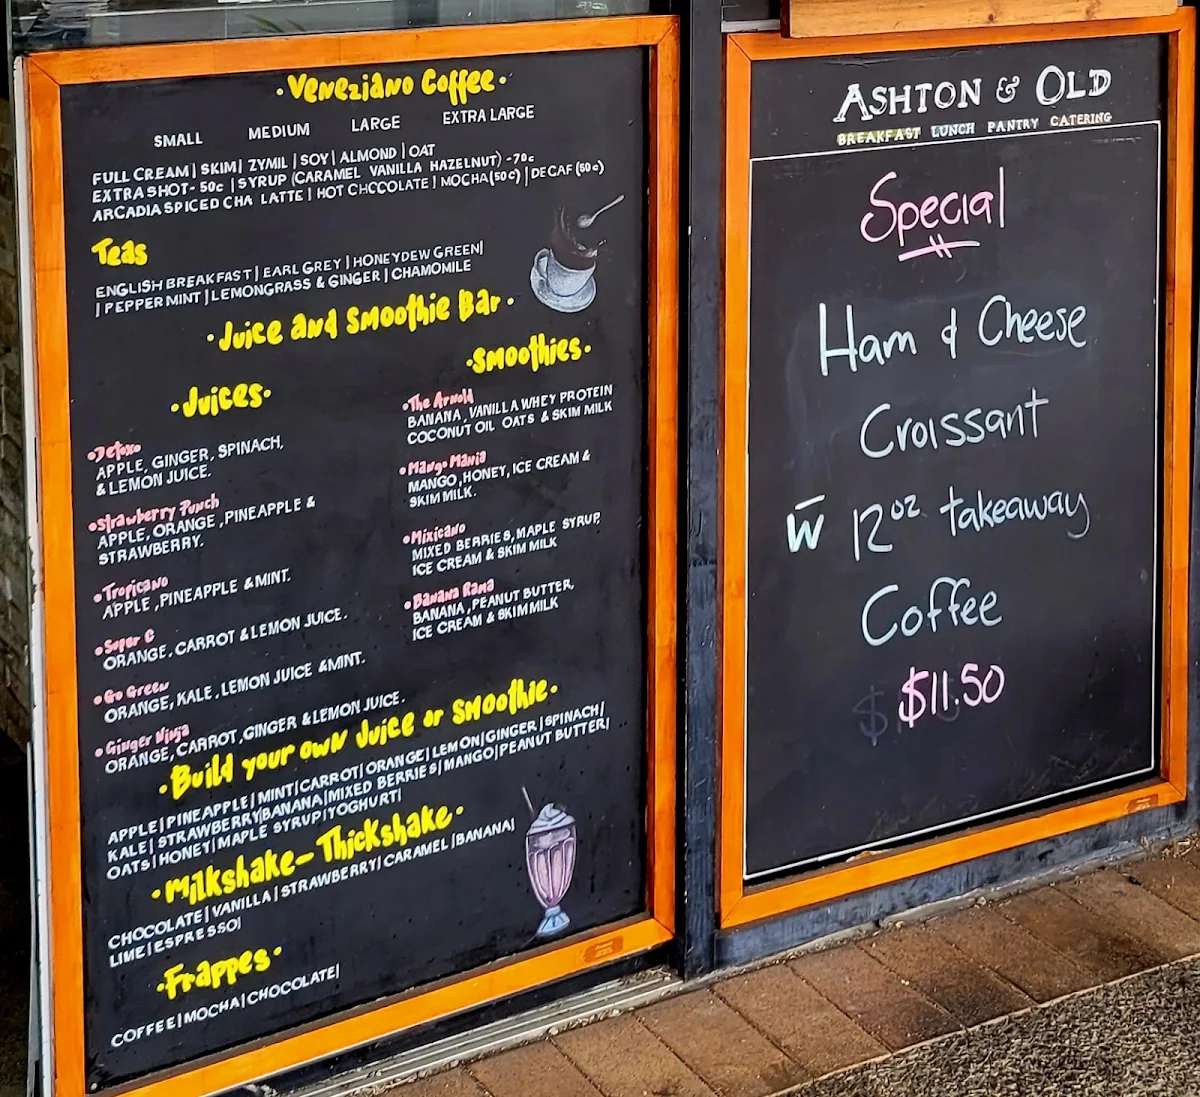 ·Veneziano Coffee·
SMALL MEDIUM LARGE EXTRA LARGE
FULL CREAM | SKIM | ZYMIL | SOY | ALMOND | OAT
EXTRA SHOT - 50c | SYRUP (CARAMEL VANILLA HAZELNUT) - 70c
ARCADIA SPICED CHA LATTE | HOT CHOCOLATE | MOCHA (50c) | DECAF (50c)
Teas
ENGLISH BREAKFAST | EARL GREY | HONEYDEW GREEN |
| PEPPERMINT | LEMONGRASS & GINGER | CHAMOMILE
·Juice and Smoothie Bar·
·Juices·
·Detoxo
APPLE, GINGER, SPINACH,
& LEMON JUICE.
·Strawberry Punch
APPLE, ORANGE, PINEAPPLE &
STRAWBERRY.
·Tropicano
APPLE, PINEAPPLE & MINT.
·Super C
ORANGE, CARROT & LEMON JUICE.
·Go Green
ORANGE, KALE, LEMON JUICE & MINT.
·Ginger Ninja
ORANGE, CARROT, GINGER & LEMON JUICE.
·Smoothies·
·The Arnold
BANANA, VANILLA WHEY PROTEIN
COCONUT OIL OATS & SKIM MILK
·Mango Mania
MANGO, HONEY, ICE CREAM &
SKIM MILK.
·Mixicano
MIXED BERRIES, MAPLE SYRUP,
ICE CREAM & SKIM MILK
·Banana Rama
BANANA, PEANUT BUTTER,
ICE CREAM & SKIM MILK
·Build your own Juice or Smoothie·
APPLE | PINEAPPLE | MINT | CARROT | ORANGE | LEMON | GINGER | SPINACH |
KALE | STRAWBERRY | BANANA | MIXED BERRIES | MANGO | PEANUT BUTTER |
OATS | HONEY | MAPLE SYRUP | YOGHURT |
·Milkshake-Thickshake·
CHOCOLATE | VANILLA | STRAWBERRY | CARAMEL | BANANA |
LIME | ESPRESSO |
·Frappes·
COFFEE | MOCHA | CHOCOLATE |
ASHTON & OLD
BREAKFAST LUNCH PANTRY CATERING
Special
Ham & Cheese
Croissant
W̄ 12oz takeaway
Coffee
$11.50